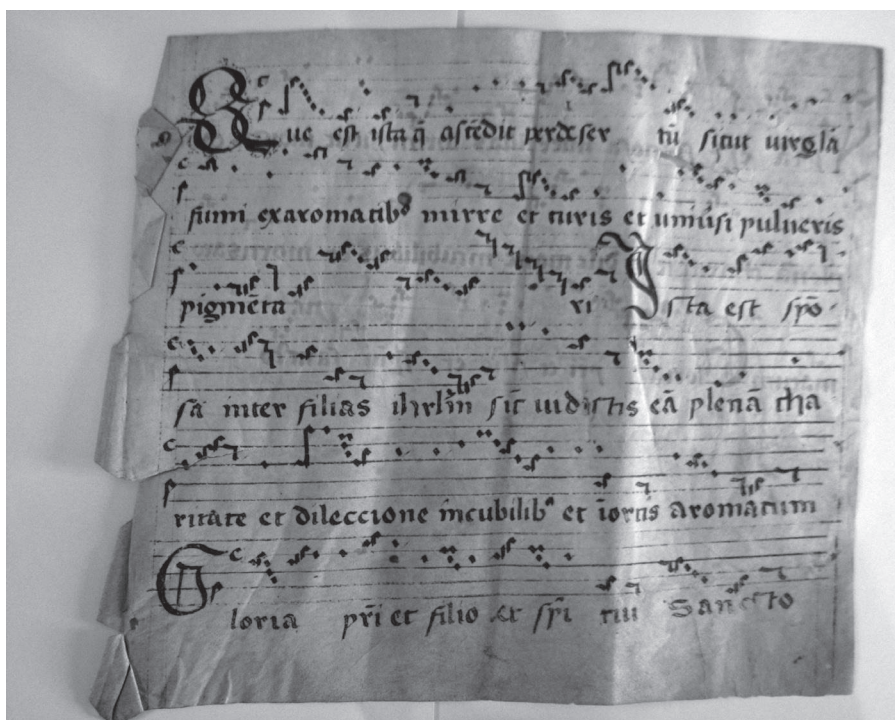 Que est ista q̄ ascēdit per deser tū sicut uirgla
fumi exaromatibꝰ mirre et turis et uniūsi pulueris
pigmēta rı Ista est spō
sa inter filias ihrlm̄ sic̄ uidistis eā plenā cha
ritate et dileccione incubilibꝰ et īortis aromatum
Gloria pr̄i et filio et sp̄i tui Sancto